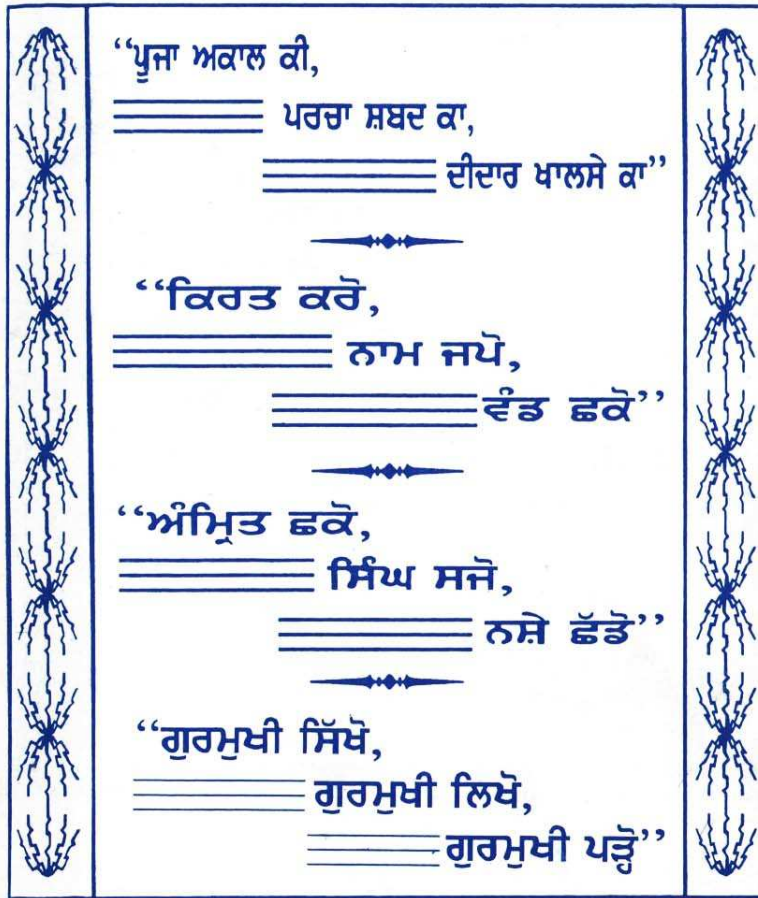 ‘‘ਪੂਜਾ ਅਕਾਲ ਕੀ,
ਪਰਚਾ ਸ਼ਬਦ ਕਾ,
ਦੀਦਾਰ ਖਾਲਸੇ ਕਾ’’
‘‘ਕਿਰਤ ਕਰੋ,
ਨਾਮ ਜਪੋ,
ਵੰਡ ਛਕੋ’’
‘‘ਅੰਮ੍ਰਿਤ ਛਕੋ,
ਸਿੰਘ ਸਜੋ,
ਨਸ਼ੇ ਛੱਡੋ’’
‘‘ਗੁਰਮੁਖੀ ਸਿੱਖੋ,
ਗੁਰਮੁਖੀ ਲਿਖੋ,
ਗੁਰਮੁਖੀ ਪੜ੍ਹੋ’’